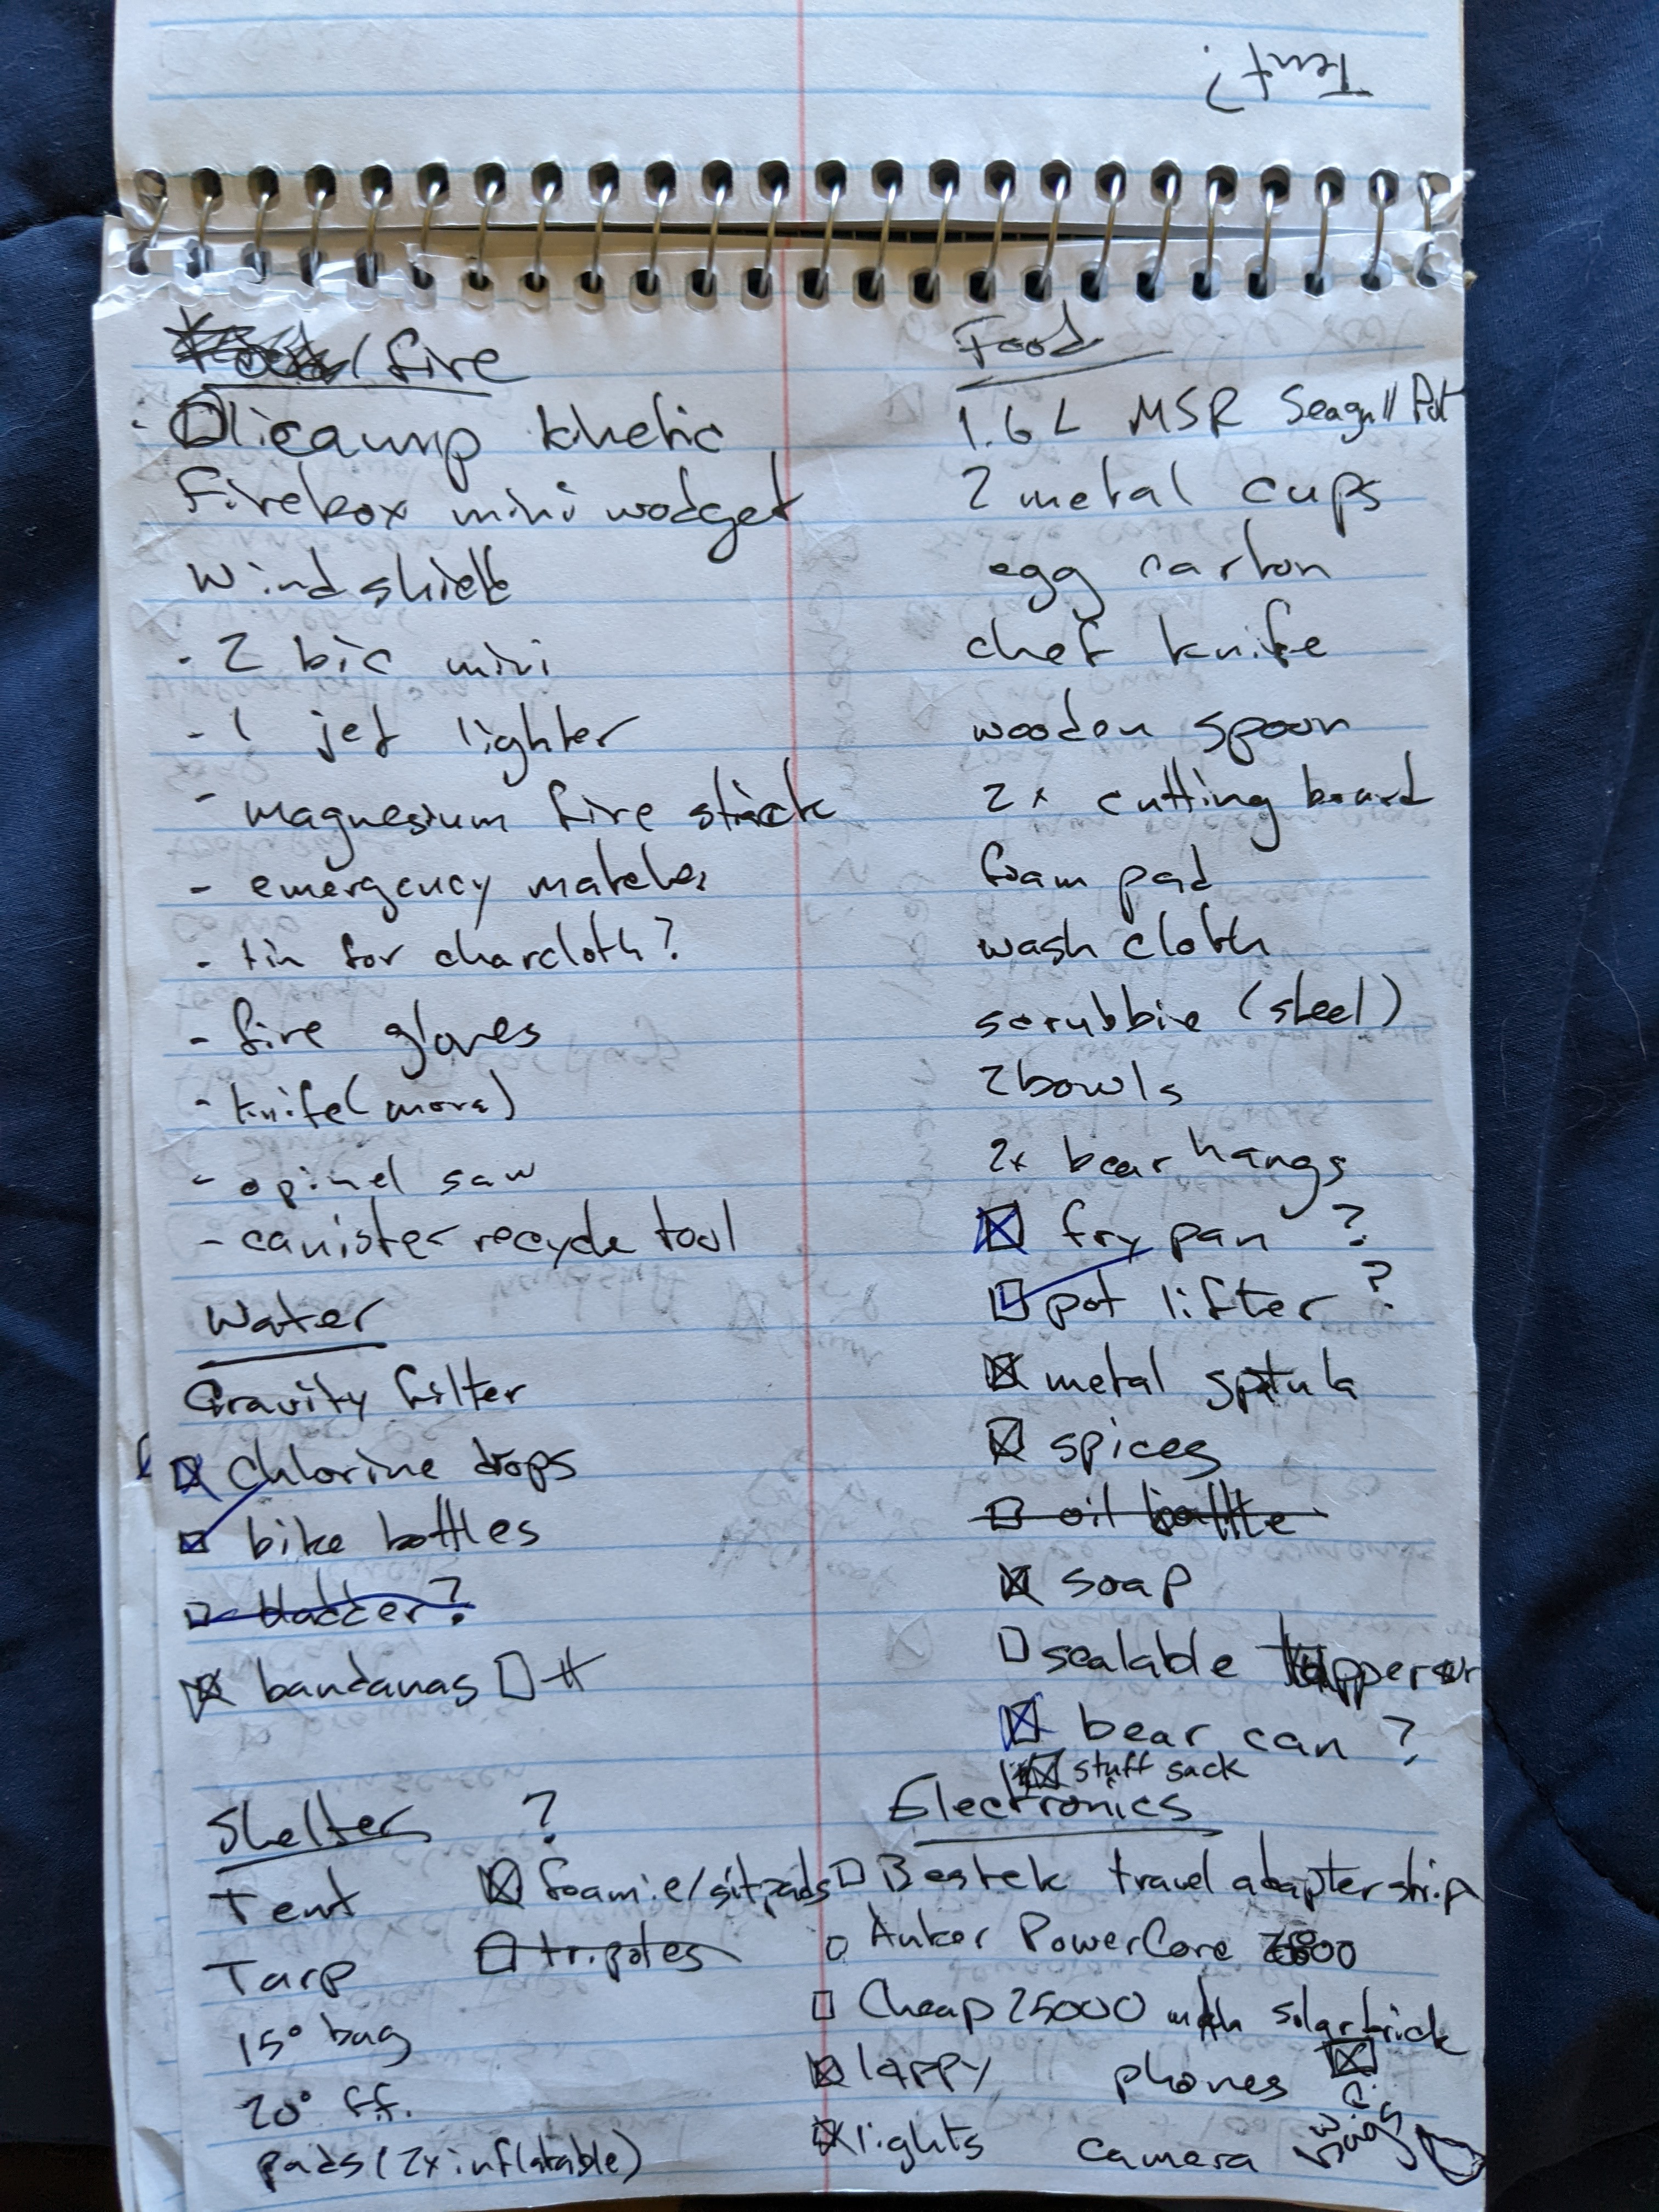 Tent?
/ fire
Olicamp kinetic
Firebox mini wodget
Windshield
- 2 bic mini
- 1 jet lighter
- magnesium fire stick
- emergency matches
- tin for charcloth?
- fire gloves
- knife (mora)
- opinel saw
- canister recycle tool
Water
Gravity filter
chlorine drops
bike bottles
bladder?
bandanas
Shelter ?
Tent
Tarp
15° bag
20° ff.
pads (2x inflatable)
foamie/sitpads
Food
1.6 L MSR Seagull Pot
2 metal cups
egg carton
chef knife
wooden spoon
2x cutting board
foam pad
wash cloth
scrubbie (steel)
2 bowls
2x bear hangs
fry pan ?
pot lifter ?
metal sptula
spices
oil bottle
soap
sealable
bear can ?
stuff sack
Electronics
Bestek travel adapter strip
Anker PowerCore
Cheap 25000 with solar brick
lappy
phones
lights
camera